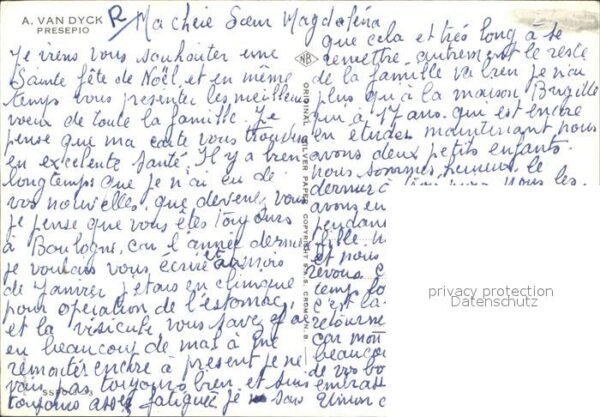 A. VAN DYCK
PRESEPIO
R/ Ma cheie Sœur Magdaléna
Je viens vous souhaiter une
Sainte fête de Noël, et en même
temps vous présenter les meilleurs
voeux de toute la famille. Je
pense que ma carte vous trouvera
en excelente santé. Il y a bien
longtemps que je n'ai eu de
vos nouvelles, que devenez vous
je pense que vous êtes toujours
à Boulogne, car l'année dernier
je voulais vous écrire et au mois
de Janvier j'etais en clinique
pour operation de l'estomac,
et la visicule vous savez j'ai
eu beaucoup de mal à me
remonter encore à present je ne
vais pas toujours bien, et suis
toujours assez fatiguée je sais
NB
ORIGINAL SILVER PAPER COPYRIGHT CROMO N.B.
que cela et très long à se
remettre, autrement le reste
de la famille va bien je n'ai
plus qu'à la maison Brigitte
qui à 17 ans. qui est encore
en études maintenant nous
avons deux petits enfants
nous sommes heureux, le
dernier à Nous les
avons en
pendant
fille, n
et nous
revous c
temps
c'est la
retourne
car mon
beaucou
de vos bo
embrass
Simon c
privacy protection
Datenschutz